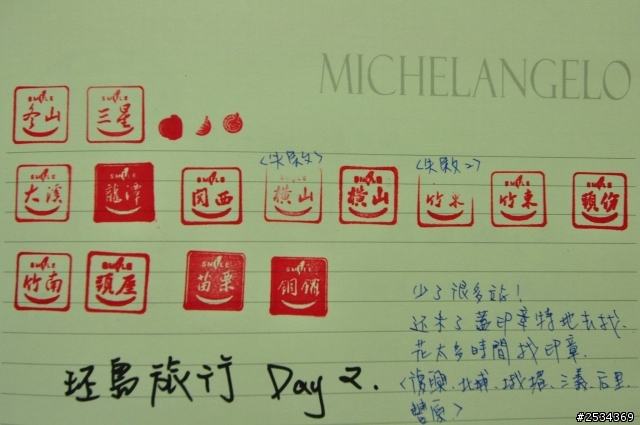 MICHELANGELO
SMILE 冬山 SMILE 三星
<失敗> <失敗2>
SMILE 大溪 SMILE 龍潭 SMILE 関西 SMILE 橫山 SMILE 橫山 SMILE 竹東 SMILE 竹東 SMILE 頭份
SMILE 竹南 SMILE 頭屋 SMILE 苗栗 SMILE 銅鑼
少了很多站!
還未了蓋印章特地去找.
花太多時間找印章.
<復興.北埔.峨嵋.三義.后里.
豐原>
环島旅行 Day 2.
#2534369